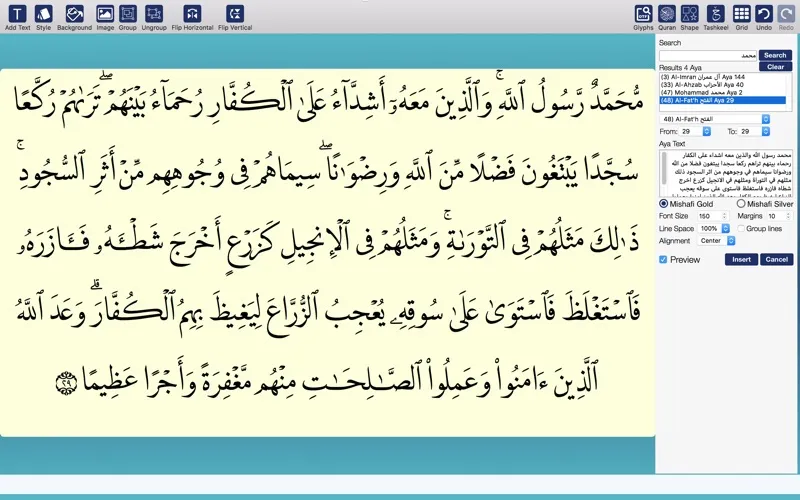 Add Text Style Background Image Group Ungroup Flip Horizontal Flip Vertical Glyphs Quran Shape Tashkeel Grid Undo Redo
Search
محمد Search
Results 4 Aya Clear
(3) Al-Imran آل عمران Aya 144
(33) Al-Ahzab الأحزاب Aya 40
(47) Mohammad محمد Aya 2
(48) Al-Fat'h الفتح Aya 29
48) Al-Fat'h الفتح
From: 29 To: 29
Aya Text
محمد رسول الله والذين معه اشداء على الكفار
رحماء بينهم تراهم ركعا سجدا يبتغون فضلا من الله
ورضوانا سيماهم في وجوههم من اثر السجود ذلك
مثلهم في التوراة ومثلهم في الانجيل كزرع اخرج
شطاه فازره فاستغلظ فاستوى على سوقه يعجب
Mishafi Gold Mishafi Silver
Font Size 150 Margins 10
Line Space 100% Group lines
Alignment Center
Preview Insert Cancel
مُّحَمَّدٌ رَّسُولُ ٱللَّهِ ۚ وَٱلَّذِينَ مَعَهُۥٓ أَشِدَّآءُ عَلَى ٱلْكُفَّارِ رُحَمَآءُ بَيْنَهُمْ ۖ تَرَىٰهُمْ رُكَّعًا
سُجَّدًا يَبْتَغُونَ فَضْلًا مِّنَ ٱللَّهِ وَرِضْوَٰنًا ۖ سِيمَاهُمْ فِى وُجُوهِهِم مِّنْ أَثَرِ ٱلسُّجُودِ ۚ
ذَٰلِكَ مَثَلُهُمْ فِى ٱلتَّوْرَىٰةِ ۚ وَمَثَلُهُمْ فِى ٱلْإِنجِيلِ كَزَرْعٍ أَخْرَجَ شَطْـَٔهُۥ فَـَٔازَرَهُۥ
فَٱسْتَغْلَظَ فَٱسْتَوَىٰ عَلَىٰ سُوقِهِۦ يُعْجِبُ ٱلزُّرَّاعَ لِيَغِيظَ بِهِمُ ٱلْكُفَّارَ ۗ وَعَدَ ٱللَّهُ
ٱلَّذِينَ ءَامَنُوا۟ وَعَمِلُوا۟ ٱلصَّـٰلِحَـٰتِ مِنْهُم مَّغْفِرَةً وَأَجْرًا عَظِيمًۢا ٢٩